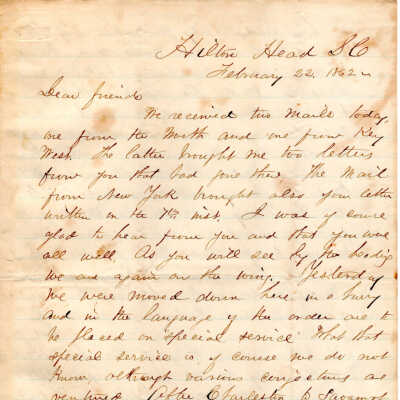 Hilton Head S C
February 22, 1862
Dear friends
We received two mails today
one from the North and one from Key
West. The latter brought me two letters
from you that had gone there. The mail
from New York brought also your letter
written on the 7th inst. I was of course
glad to hear from you and that you were
all well. As you will see by the heading
we are again on the wing. Yesterday
we were moved down here in a hurry
and in the language of the order are to
be placed on special service. What that
special service is of course we do not
know, although various conjectures are
ventured. Either Charleston or Savannah